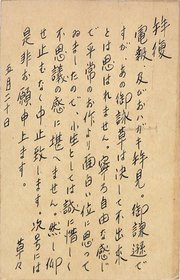 拝復
電報及びおハガキ拝見。御謙遜で
すが、あの御詠草は決して不出来
とは思はれません。寧ろ自然に
で平常のお作より面白い位に思って
ゐましたので、小生としては誠に惜しく
不思議の感に堪へません。然し仰
せ止もなく中止致します。次号には
是非お願申上ます。
草々
五月二十日